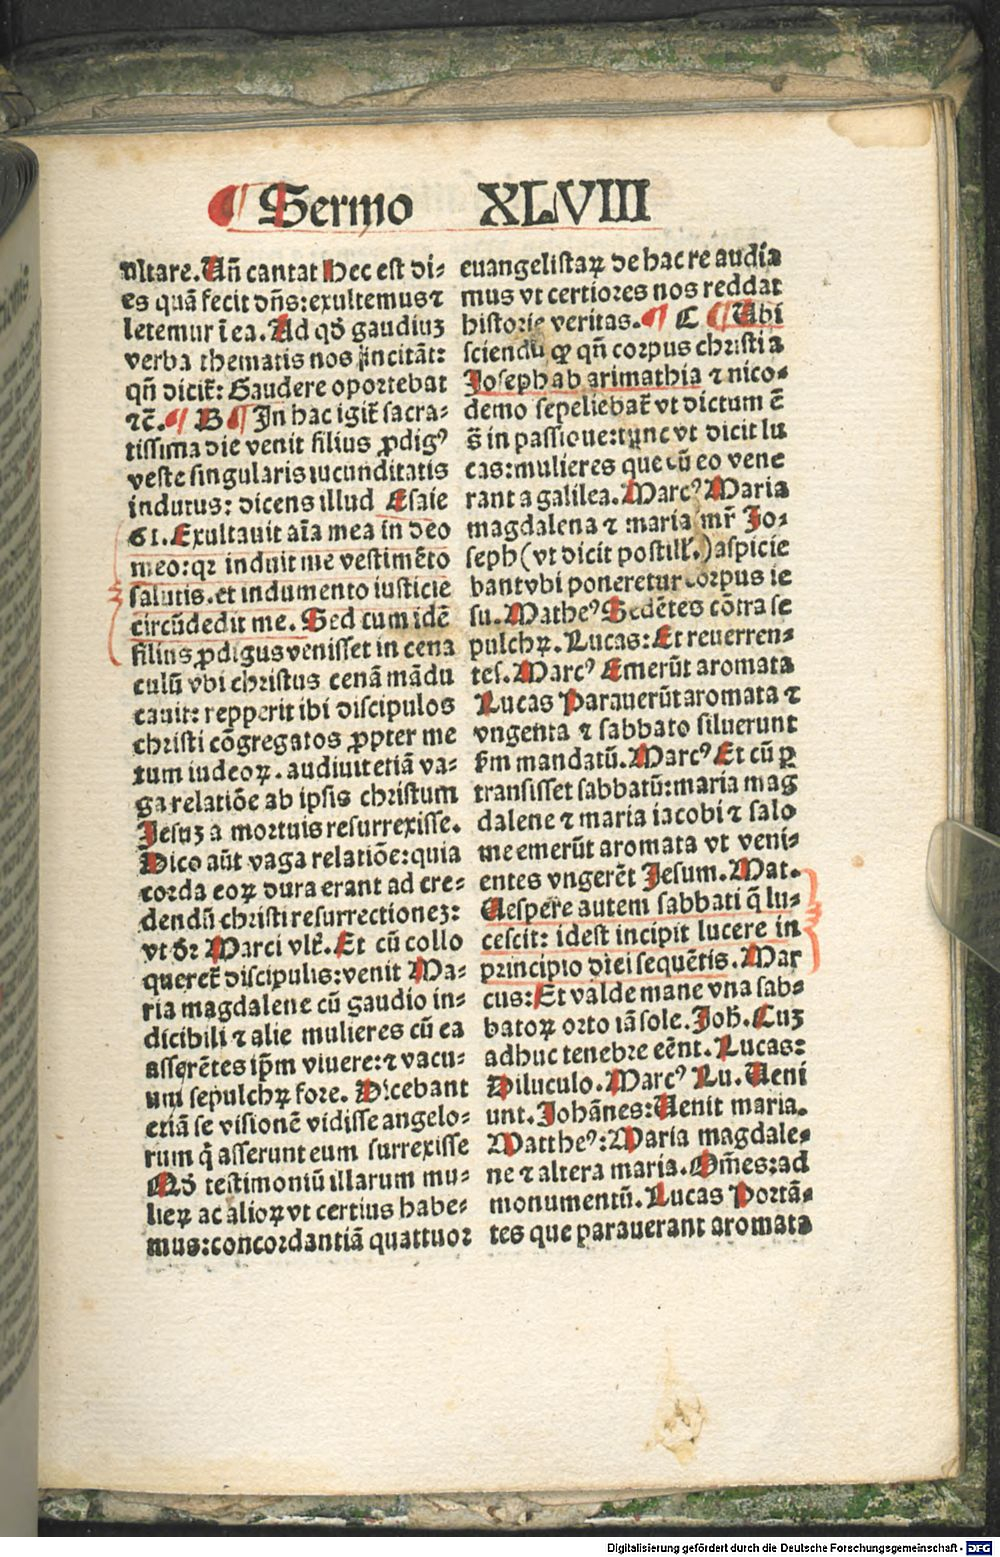 ¶ Sermo XLVIII
ultare. Uñ cantat Hec est di⸗
es quã fecit dñs: exultemus ⁊
letemur ĩ ea. Ad qđ gaudiuʒ
verba thematis nos incitãt:
qñ dicit̃: Gaudere oportebat
⁊c̃. ¶ B ¶ In hac igit̃ sacra⸗
tissima die venit filius ꝓdigꝰ
veste singularis iucunditatis
indutus: dicens illud Esaie
61. Exultauit aĩa mea in deo
meo: qꝛ induit me vestimẽto
salutis. et indumento iusticie
circũdedit me. Sed cum idẽ
filius ꝓdigus venisset in cena
culũ vbi christus cenã mãdu
cauit: repperit ibi discipulos
christi cõgregatos ꝓpter me
tum iudeoꝝ. audiuit etiã va⸗
ga relatiõe ab ipsis christum
Jesuʒ a mortuis resurrexisse.
Dico aũt vaga relatiõe: quia
corda eoꝝ dura erant ad cre⸗
dendũ christi resurrectioneʒ:
vt đꝛ Marci vlt̃. Et cũ collo
queret̃ discipulis: venit Ma⸗
ria magdalene cũ gaudio in⸗
dicibili ⁊ alie mulieres cũ ea
asserẽtes ip̃m viuere: ⁊ vacu⸗
um sepulchꝝ fore. Dicebant
etiã se visionẽ vidisse angelo⸗
rum q̃ asserunt eum surrexisse
Qđ testimoniũ illarum mu⸗
lieꝝ ac alioꝝ vt certius habe⸗
mus: concordantiã quattuor
euangelistaꝝ de hac re audia
mus vt certiores nos reddat
historie veritas. ¶ C ¶ Ubi
sciendũ ꝙ qñ corpus christi a
Joseph ab arimathia ⁊ nico⸗
demo sepeliebat̃ vt dictum ẽ
s̃ in passione: tunc vt dicit lu
cas: mulieres que cũ eo vene
rant a galilea. Marcꝰ Maria
magdalena ⁊ maria mr̃ Jo⸗
seph (vt dicit postill̃.) aspicie
bant vbi poneretur corpus ie
su. Matheꝰ Sedẽtes cõtra se
pulchꝝ. Lucas: Et reuerren⸗
tes. Marcꝰ Emerũt aromata
Lucas Parauerũt aromata ⁊
vngenta ⁊ sabbato siluerunt
ẜm mandatũ. Marcꝰ Et cũ ꝑ
transisset sabbatũ: maria mag
dalene ⁊ maria iacobi ⁊ salo
me emerũt aromata vt veni⸗
entes vngerẽt Jesum. Mat.
Uespere autem sabbati q̃ lu⸗
cescit: idest incipit lucere in
principio diei sequẽtis. Mar
cus: Et valde mane vna sab⸗
batoꝝ orto iã sole. Joh̃. Cuʒ
adhuc tenebre eẽnt. Lucas:
Diluculo. Marcꝰ Lu. Ueni
unt. Johãnes: Uenit maria.
Mattheꝰ: Maria magdale⸗
ne ⁊ altera maria. Om̃es: ad
monumentũ. Lucas Portã⸗
tes que parauerant aromata
Digitalisierung gefördert durch die Deutsche Forschungsgemeinschaft - DFG